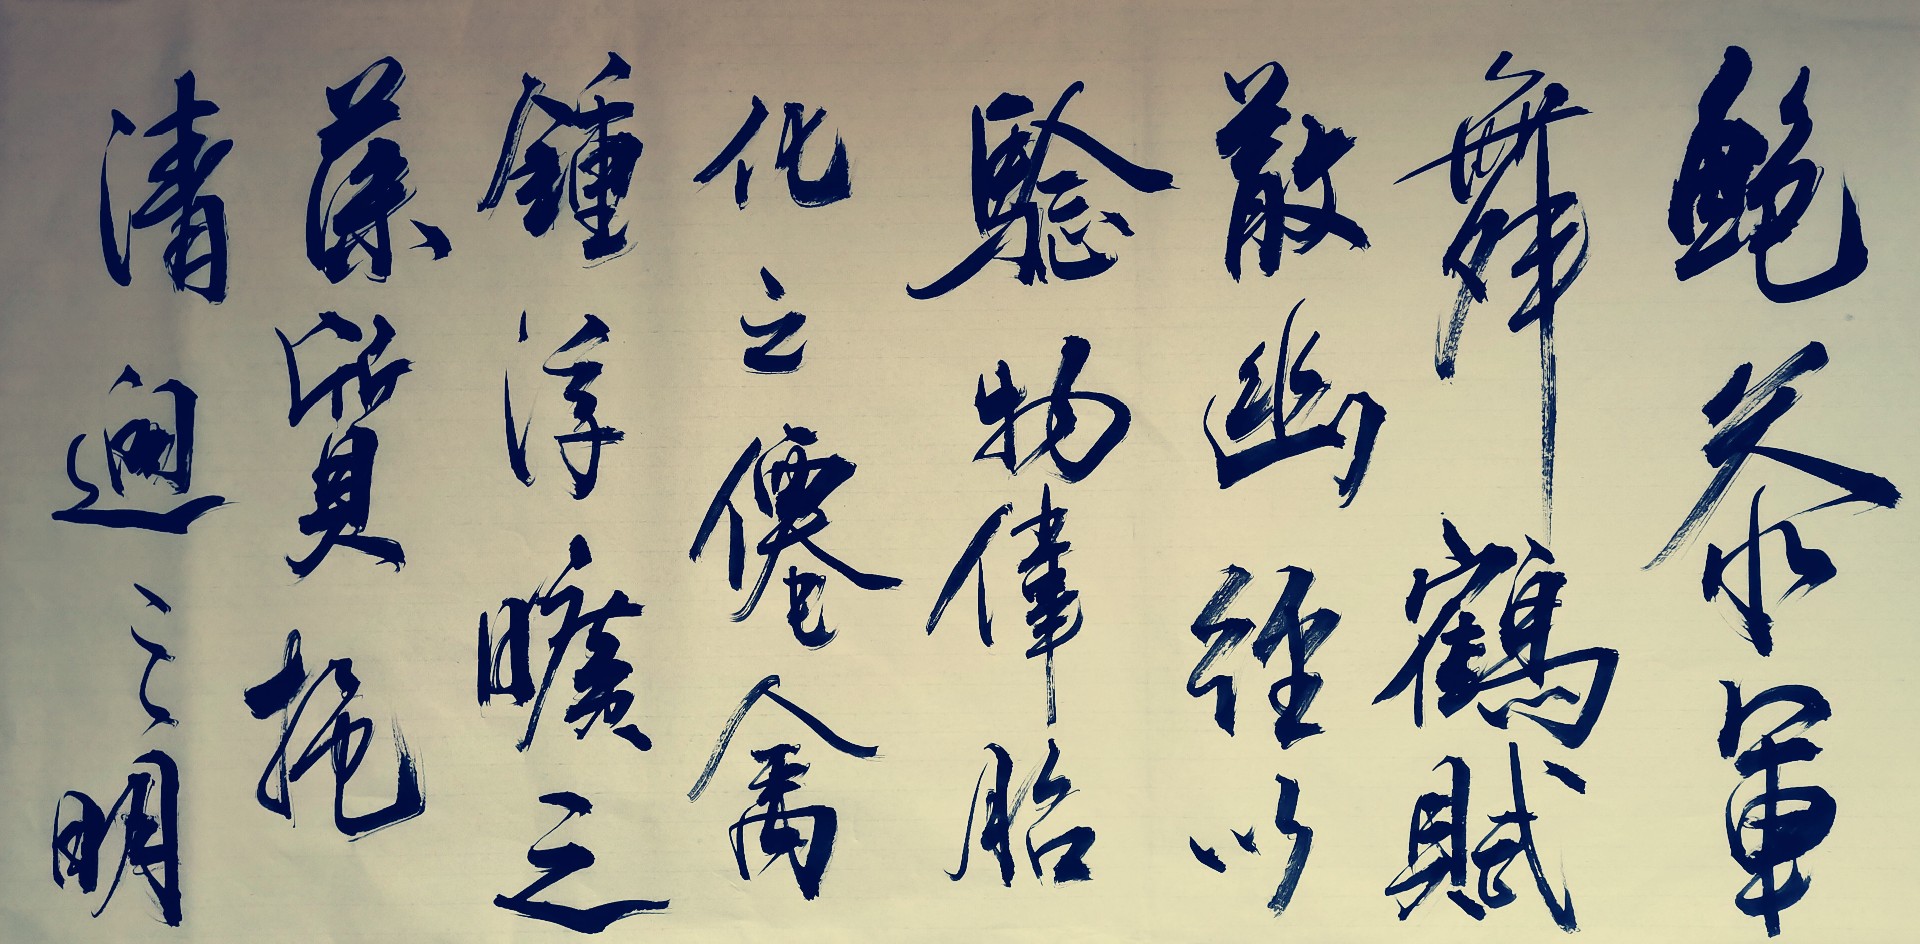 鮑參軍
舞鶴賦
散幽經以
騐物偉胎
化之僊禽
鍾浮曠之
藻質抱
清迥之明